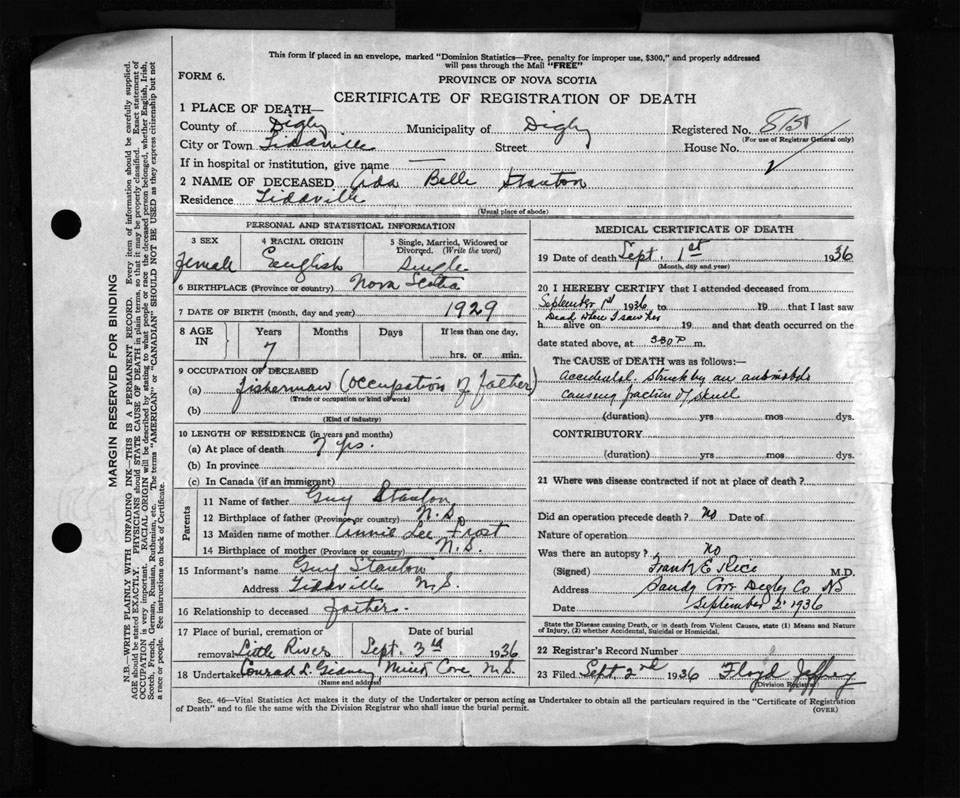 This form if placed in an envelope, marked "Dominion Statistics—Free, penalty for improper use, $300," and properly addressed
will pass through the Mail "FREE"
FORM 6.
PROVINCE OF NOVA SCOTIA
CERTIFICATE OF REGISTRATION OF DEATH
1 PLACE OF DEATH—
County of Digby Municipality of Digby Registered No.
(For use of Registrar General only)
City or Town Tiddville Street House No.
If in hospital or institution, give name —
2 NAME OF DECEASED Ada Belle Stanton
Residence Tiddville
(Usual place of abode)
PERSONAL AND STATISTICAL INFORMATION
3 SEX 4 RACIAL ORIGIN 5 Single, Married, Widowed or
Divorced. (Write the word)
Female English Single
6 BIRTHPLACE (Province or country) Nova Scotia
7 DATE OF BIRTH (month, day and year) 1929
8 AGE IN Years Months Days If less than one day,
7 hrs. or min.
9 OCCUPATION OF DECEASED
(a) Fisherman (occupation of father)
(Trade or occupation or kind of work)
(b)
(Kind of industry)
10 LENGTH OF RESIDENCE (in years and months)
(a) At place of death 7 yrs.
(b) In province
(c) In Canada (if an immigrant)
Parents
11 Name of father Guy Stanton
12 Birthplace of father (Province or country) N.S.
13 Maiden name of mother Annie Lee Frost
14 Birthplace of mother (Province or country) N.S.
15 Informant's name Guy Stanton
Address Tiddville N.S.
16 Relationship to deceased father.
17 Place of burial, cremation or Date of burial
removal Little River Sept. 3rd 1936
18 Undertaker Conrad L. Gidney Mink Cove N.S.
(Name and address)
MEDICAL CERTIFICATE OF DEATH
19 Date of death Sept. 1st 1936
(Month, day and year)
20 I HEREBY CERTIFY that I attended deceased from
September 1st 1936 to 19 that I last saw
Dead when I saw her
h alive on 19 and that death occurred on
date stated above, at 3.30 P m.
The CAUSE of DEATH was as follows:—
Accidental. Struck by an automobile
causing fraction of skull
(duration) yrs mos dys.
CONTRIBUTORY
(duration) yrs mos dys.
21 Where was disease contracted if not at place of death?
Did an operation precede death? No Date of
Nature of operation
Was there an autopsy? No
(Signed) Frank E. Rice M.D.
Address Sandy Cove Digby Co NS
Date September 2. 1936
State the Disease causing Death, or in death from Violent Causes, state (1) Means and Nature
of Injury, (2) whether Accidental, Suicidal or Homicidal.
22 Registrar's Record Number
23 Filed Sept. 2nd 1936 Floyd Jeffrey
Division Registrar
Sec. 46—Vital Statistics Act makes it the duty of the Undertaker or person acting as Undertaker to obtain all the particulars required in the "Certificate of Registration
of Death" and to file the same with the Division Registrar who shall issue the burial permit.
(OVER)
MARGIN RESERVED FOR BINDING
N.B.—WRITE PLAINLY WITH UNFADING INK—THIS IS A PERMANENT RECORD. Every item of information should be carefully supplied.
AGE should be stated EXACTLY. PHYSICIANS should STATE CAUSE OF DEATH in plain terms, so that it may be properly classified. Exact statement of
OCCUPATION is very important. RACIAL ORIGIN will be described by stating to what people or race the deceased person belonged, whether English, Irish,
Scotch, French, German, Russian, Ruthenian, etc. The terms "AMERICAN" or "CANADIAN" SHOULD NOT BE USED as they express citizenship but not
a race or people. See instructions on back of Certificate.